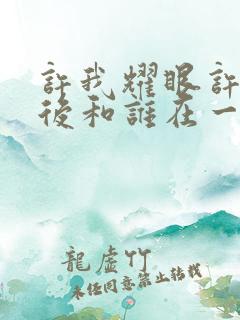 許我耀眼許
後和誰在一
龍虛竹
未經同意禁止轉載